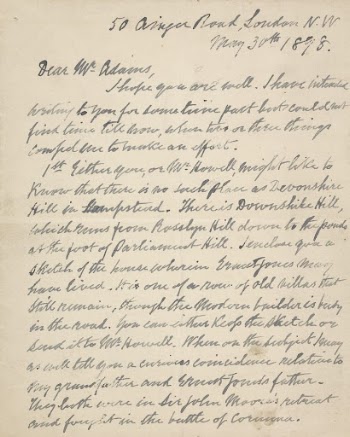 50 Ainger Road, London N.W.
May 30th 1898.
Dear Mr Adams,
I hope you are well. I have intended
writing to you for some time past but could not
find time till now, when two or three things
compel me to make an effort.
1st Either you, or Mr Howell, might like to
Know that there is no such place as Devonshire
Hill in Hampstead. There is Downshire Hill,
which runs from Rosslyn Hill down to the ponds
at the foot of Parliament Hill. I enclose you a
sketch of the house wherein Ernest Jones may
have lived. It is one of a row of old villas that
still remain, though the modern builder is busy
in the road. You can either keep the sketch or
send it to Mr Howell. When on the subject I may
as well tell you a curious coincidence relative to
my grandfather and Ernest Jones father.
They both were in Sir John Moore's retreat
and fought in the battle of Corunna.